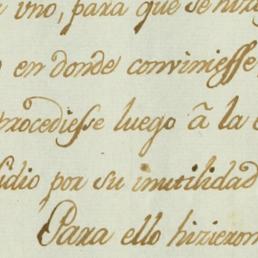 uno, para que se hiz
en donde conviniesse,
procediesse luego â la
sidio por su inutilidad
Para ello hizieron